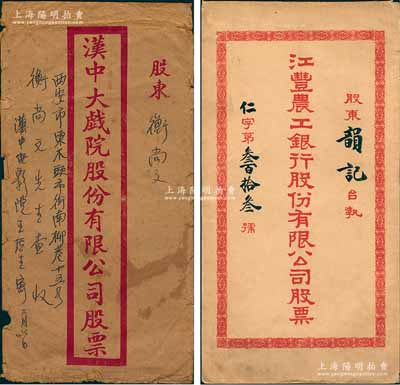 上海陽明拍賣
股東 衡尚文
漢中大戲院股份有限公司股票
西安市東木頭市街南柳巷十五号
衡尚文先生查收
上海陽明拍賣
股東 韻記 台執
江豐農工銀行股份有限公司股票
仁字第叁百拾叁號